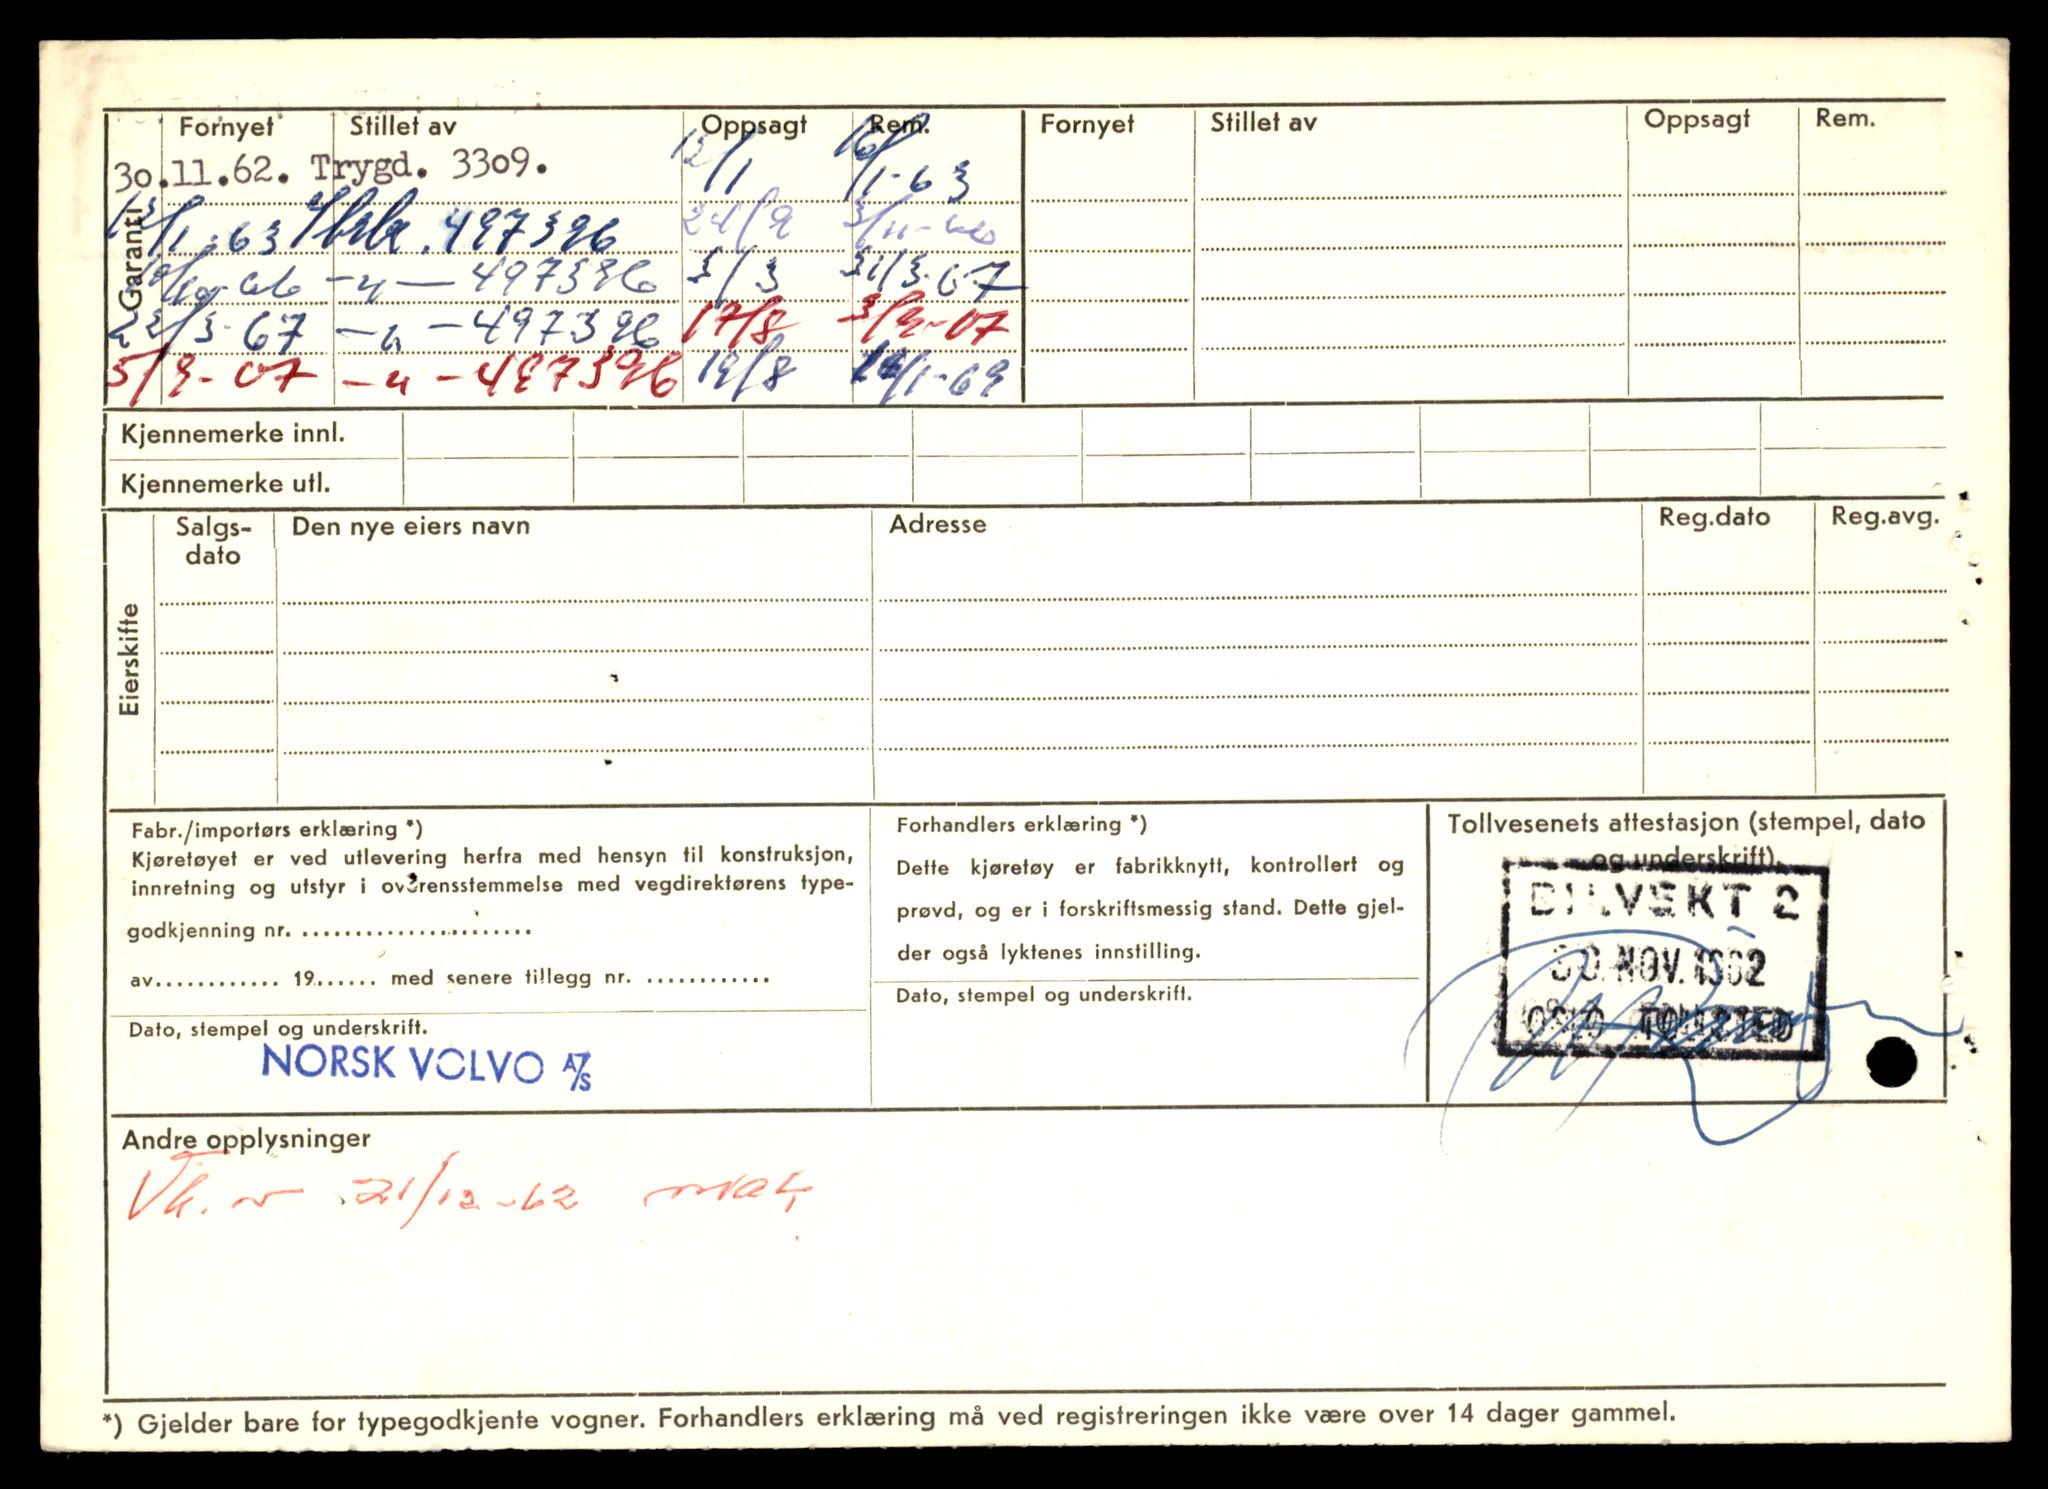 Garanti
Fornyet Stillet av Oppsagt Rem. Fornyet Stillet av Oppsagt Rem.
30.11.62. Trygd. 3309. 12/1 16/1-63
12/1-63 497396 24/9
-"- 497396 3/3 31/3-67
22/3-67 -"- 497396 17/8 5/9-67
5/9-67 -"- 497396 19/8 /1-69
Kjennemerke innl.
Kjennemerke utl.
Eierskifte
Salgs-dato Den nye eiers navn Adresse Reg.dato Reg.avg.
Fabr./importørs erklæring *)
Kjøretøyet er ved utlevering herfra med hensyn til konstruksjon,
innretning og utstyr i overensstemmelse med vegdirektørens type-
godkjenning nr. ......................
av............ 19...... med senere tillegg nr. ............
Dato, stempel og underskrift.
NORSK VOLVO A/S
Forhandlers erklæring *)
Dette kjøretøy er fabrikknytt, kontrollert og
prøvd, og er i forskriftsmessig stand. Dette gjel-
der også lyktenes innstilling.
Dato, stempel og underskrift.
Tollvesenets attestasjon (stempel, dato
og underskrift).
BILVEKT 2
30. NOV. 1962
OSLO TOLLSTED
Andre opplysninger
Vk. 21/12-62
*) Gjelder bare for typegodkjente vogner. Forhandlers erklæring må ved registreringen ikke være over 14 dager gammel.